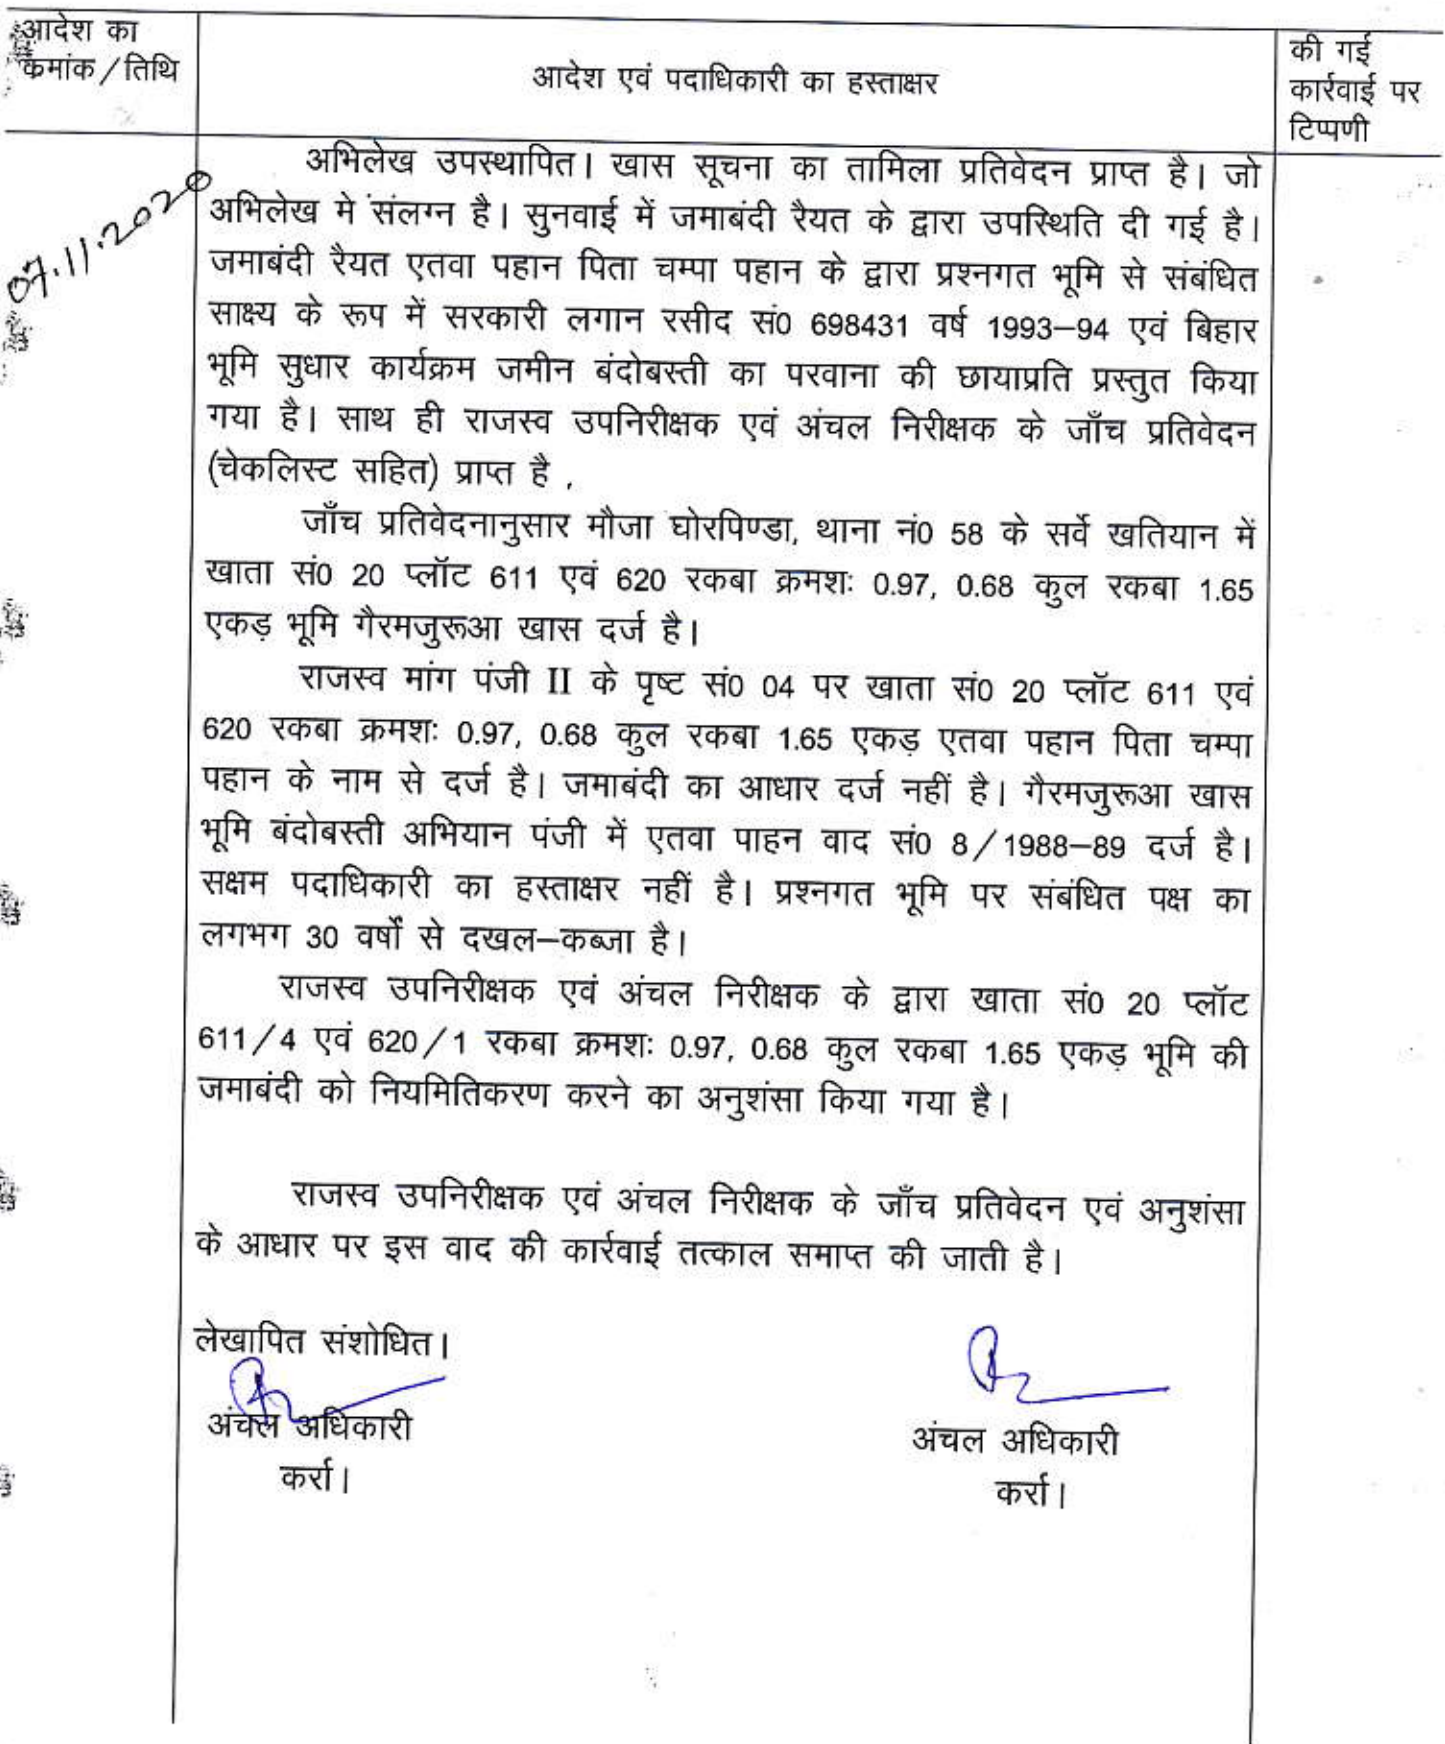 आदेश का
क्रमांक/तिथि
आदेश एवं पदाधिकारी का हस्ताक्षर
की गई
कार्रवाई पर
टिप्पणी
07.11.2020
अभिलेख उपस्थापित। खास सूचना का तामिला प्रतिवेदन प्राप्त है। जो
अभिलेख मे संलग्न है। सुनवाई में जमाबंदी रैयत के द्वारा उपस्थिति दी गई है।
जमाबंदी रैयत एतवा पहान पिता चम्पा पहान के द्वारा प्रश्नगत भूमि से संबंधित
साक्ष्य के रूप में सरकारी लगान रसीद सं0 698431 वर्ष 1993–94 एवं बिहार
भूमि सुधार कार्यक्रम जमीन बंदोबस्ती का परवाना की छायाप्रति प्रस्तुत किया
गया है। साथ ही राजस्व उपनिरीक्षक एवं अंचल निरीक्षक के जाँच प्रतिवेदन
(चेकलिस्ट सहित) प्राप्त है ,
जाँच प्रतिवेदनानुसार मौजा घोरपिण्डा, थाना नं0 58 के सर्वे खतियान में
खाता सं0 20 प्लॉट 611 एवं 620 रकबा क्रमशः 0.97, 0.68 कुल रकबा 1.65
एकड़ भूमि गैरमजुरूआ खास दर्ज है।
राजस्व मांग पंजी II के पृष्ट सं0 04 पर खाता सं0 20 प्लॉट 611 एवं
620 रकबा क्रमशः 0.97, 0.68 कुल रकबा 1.65 एकड़ एतवा पहान पिता चम्पा
पहान के नाम से दर्ज है। जमाबंदी का आधार दर्ज नहीं है। गैरमजुरूआ खास
भूमि बंदोबस्ती अभियान पंजी में एतवा पाहन वाद सं0 8/1988–89 दर्ज है।
सक्षम पदाधिकारी का हस्ताक्षर नहीं है। प्रश्नगत भूमि पर संबंधित पक्ष का
लगभग 30 वर्षों से दखल–कब्जा है।
राजस्व उपनिरीक्षक एवं अंचल निरीक्षक के द्वारा खाता सं0 20 प्लॉट
611/4 एवं 620/1 रकबा क्रमशः 0.97, 0.68 कुल रकबा 1.65 एकड़ भूमि की
जमाबंदी को नियमितिकरण करने का अनुशंसा किया गया है।
राजस्व उपनिरीक्षक एवं अंचल निरीक्षक के जाँच प्रतिवेदन एवं अनुशंसा
के आधार पर इस वाद की कार्रवाई तत्काल समाप्त की जाती है।
लेखापित संशोधित।
अंचल अधिकारी
कर्रा।
अंचल अधिकारी
कर्रा।